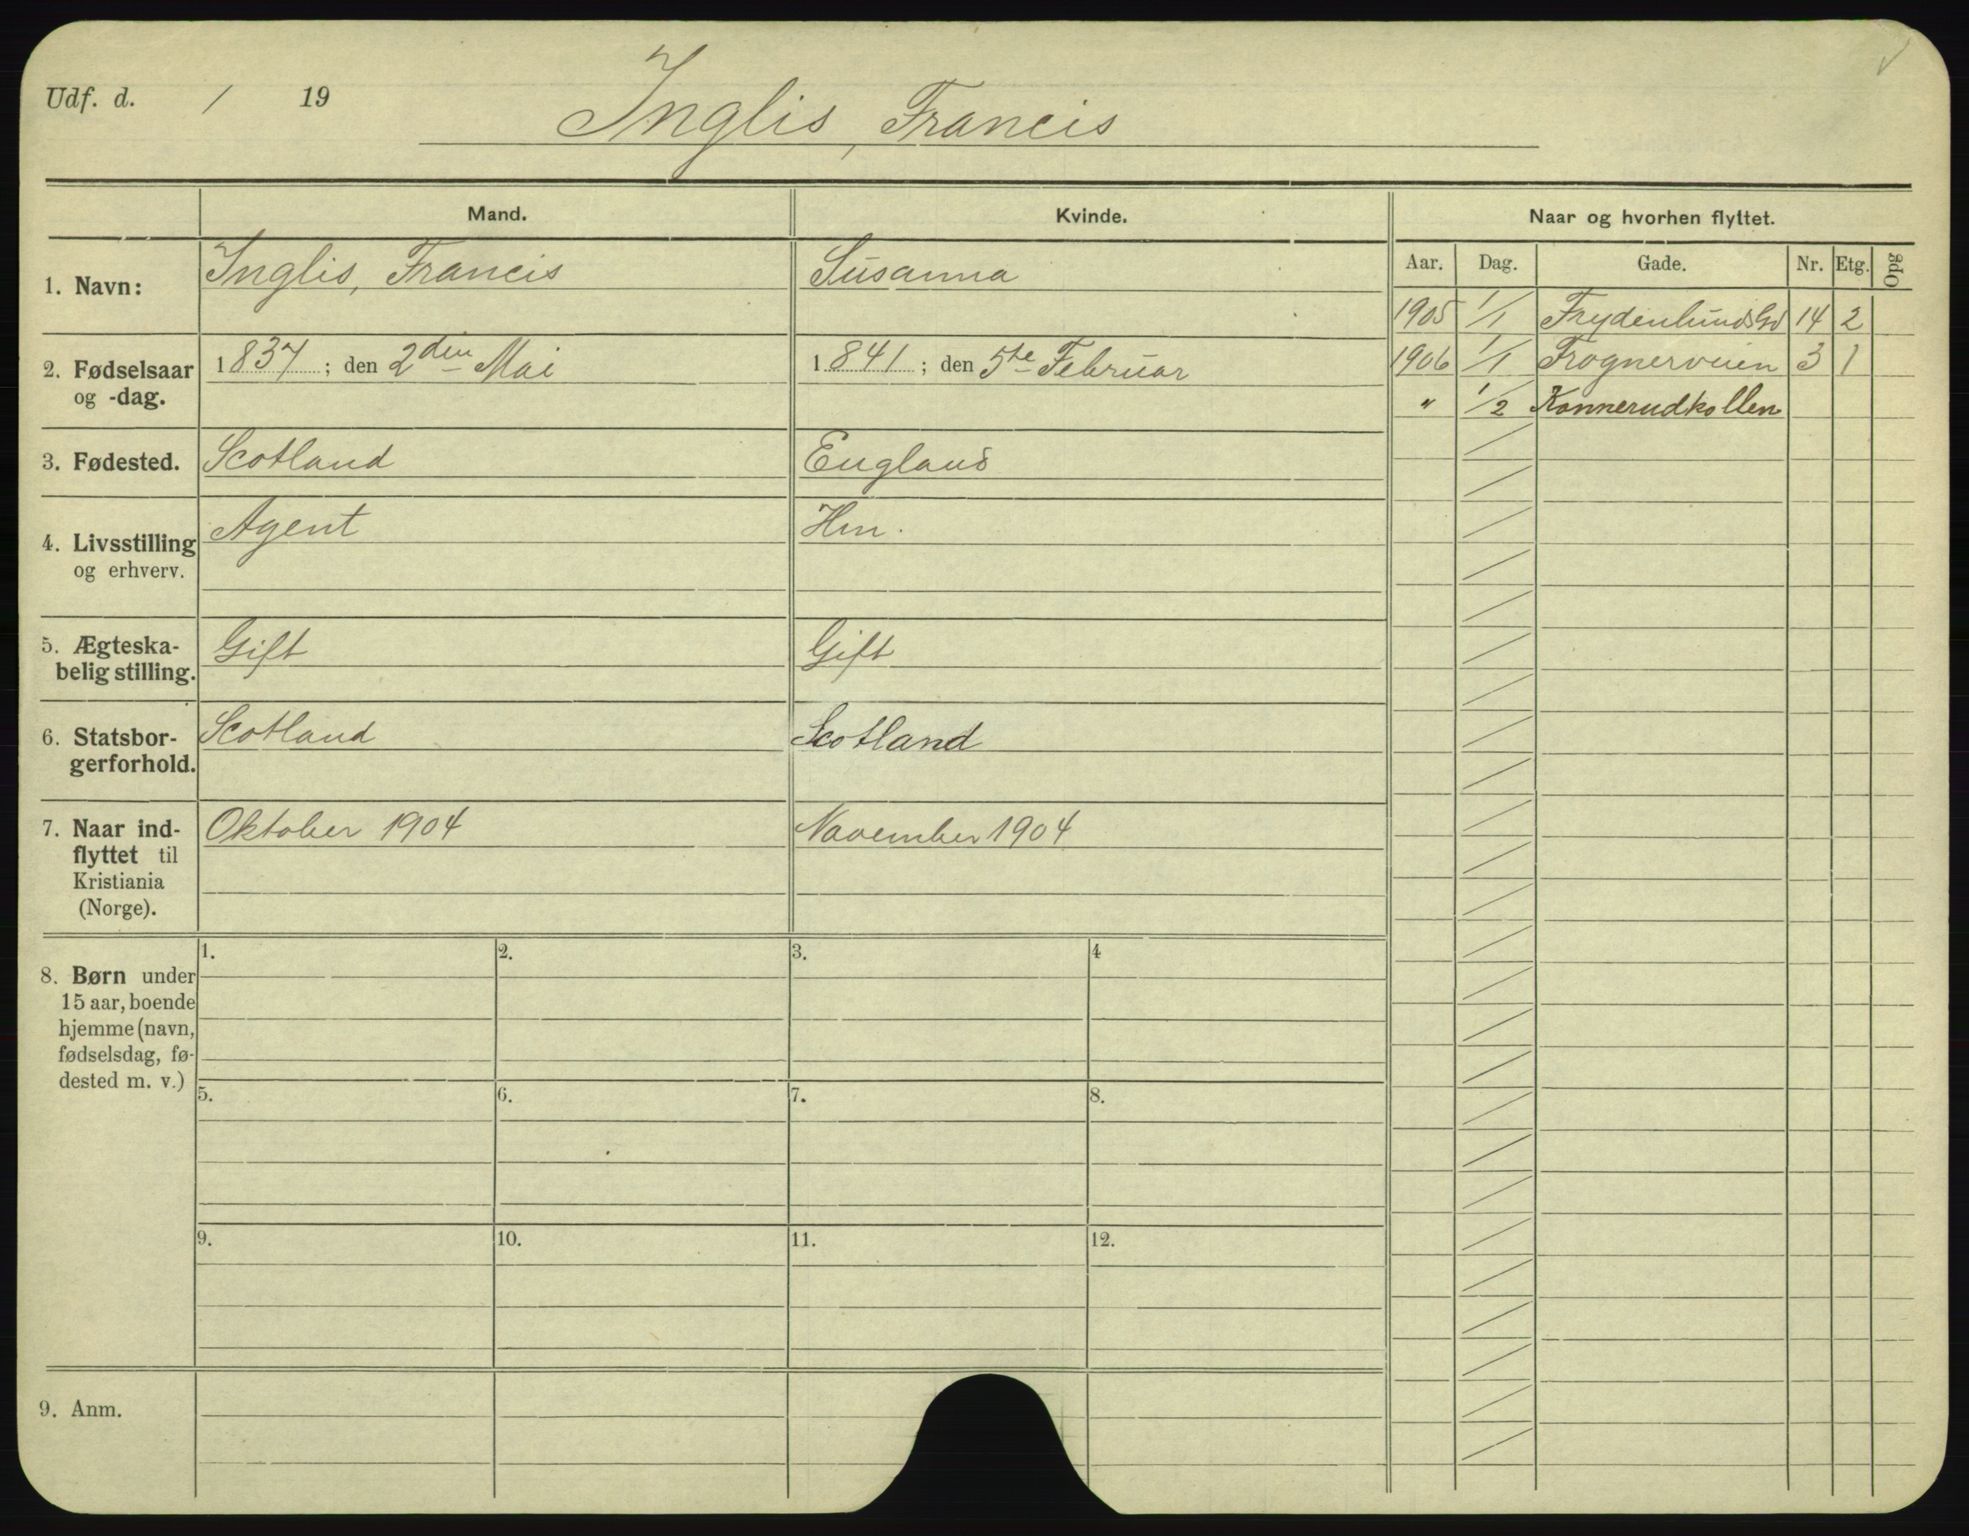 Udf. d. / 19
Inglis, Francis
Mand. Kvinde. Naar og hvorhen flyttet.
Aar. Dag. Gade. Nr. Etg. Opg
1. Navn: Inglis, Francis Susanna
1905 1/1 Frydenlundsgd 14 2
2. Fødselsaar og -dag. 1837; den 2den Mai 1841; den 5te Februar
1906 1/1 Frognerveien 3 1
" 1/2 Konnerudkollen
3. Fødested. Scotland England
4. Livsstilling og erhverv. Agent Hm.
5. Ægteska-
belig stilling. Gift Gift
6. Statsbor-
gerforhold. Scotland Scotland
7. Naar ind-
flyttet til
Kristiania
(Norge). Oktober 1904 November 1904
8. Børn under
15 aar, boende
hjemme (navn,
fødselsdag, fø-
dested m. v.)
1. 2. 3. 4
5. 6. 7. 8.
9. 10. 11. 12.
9. Anm.